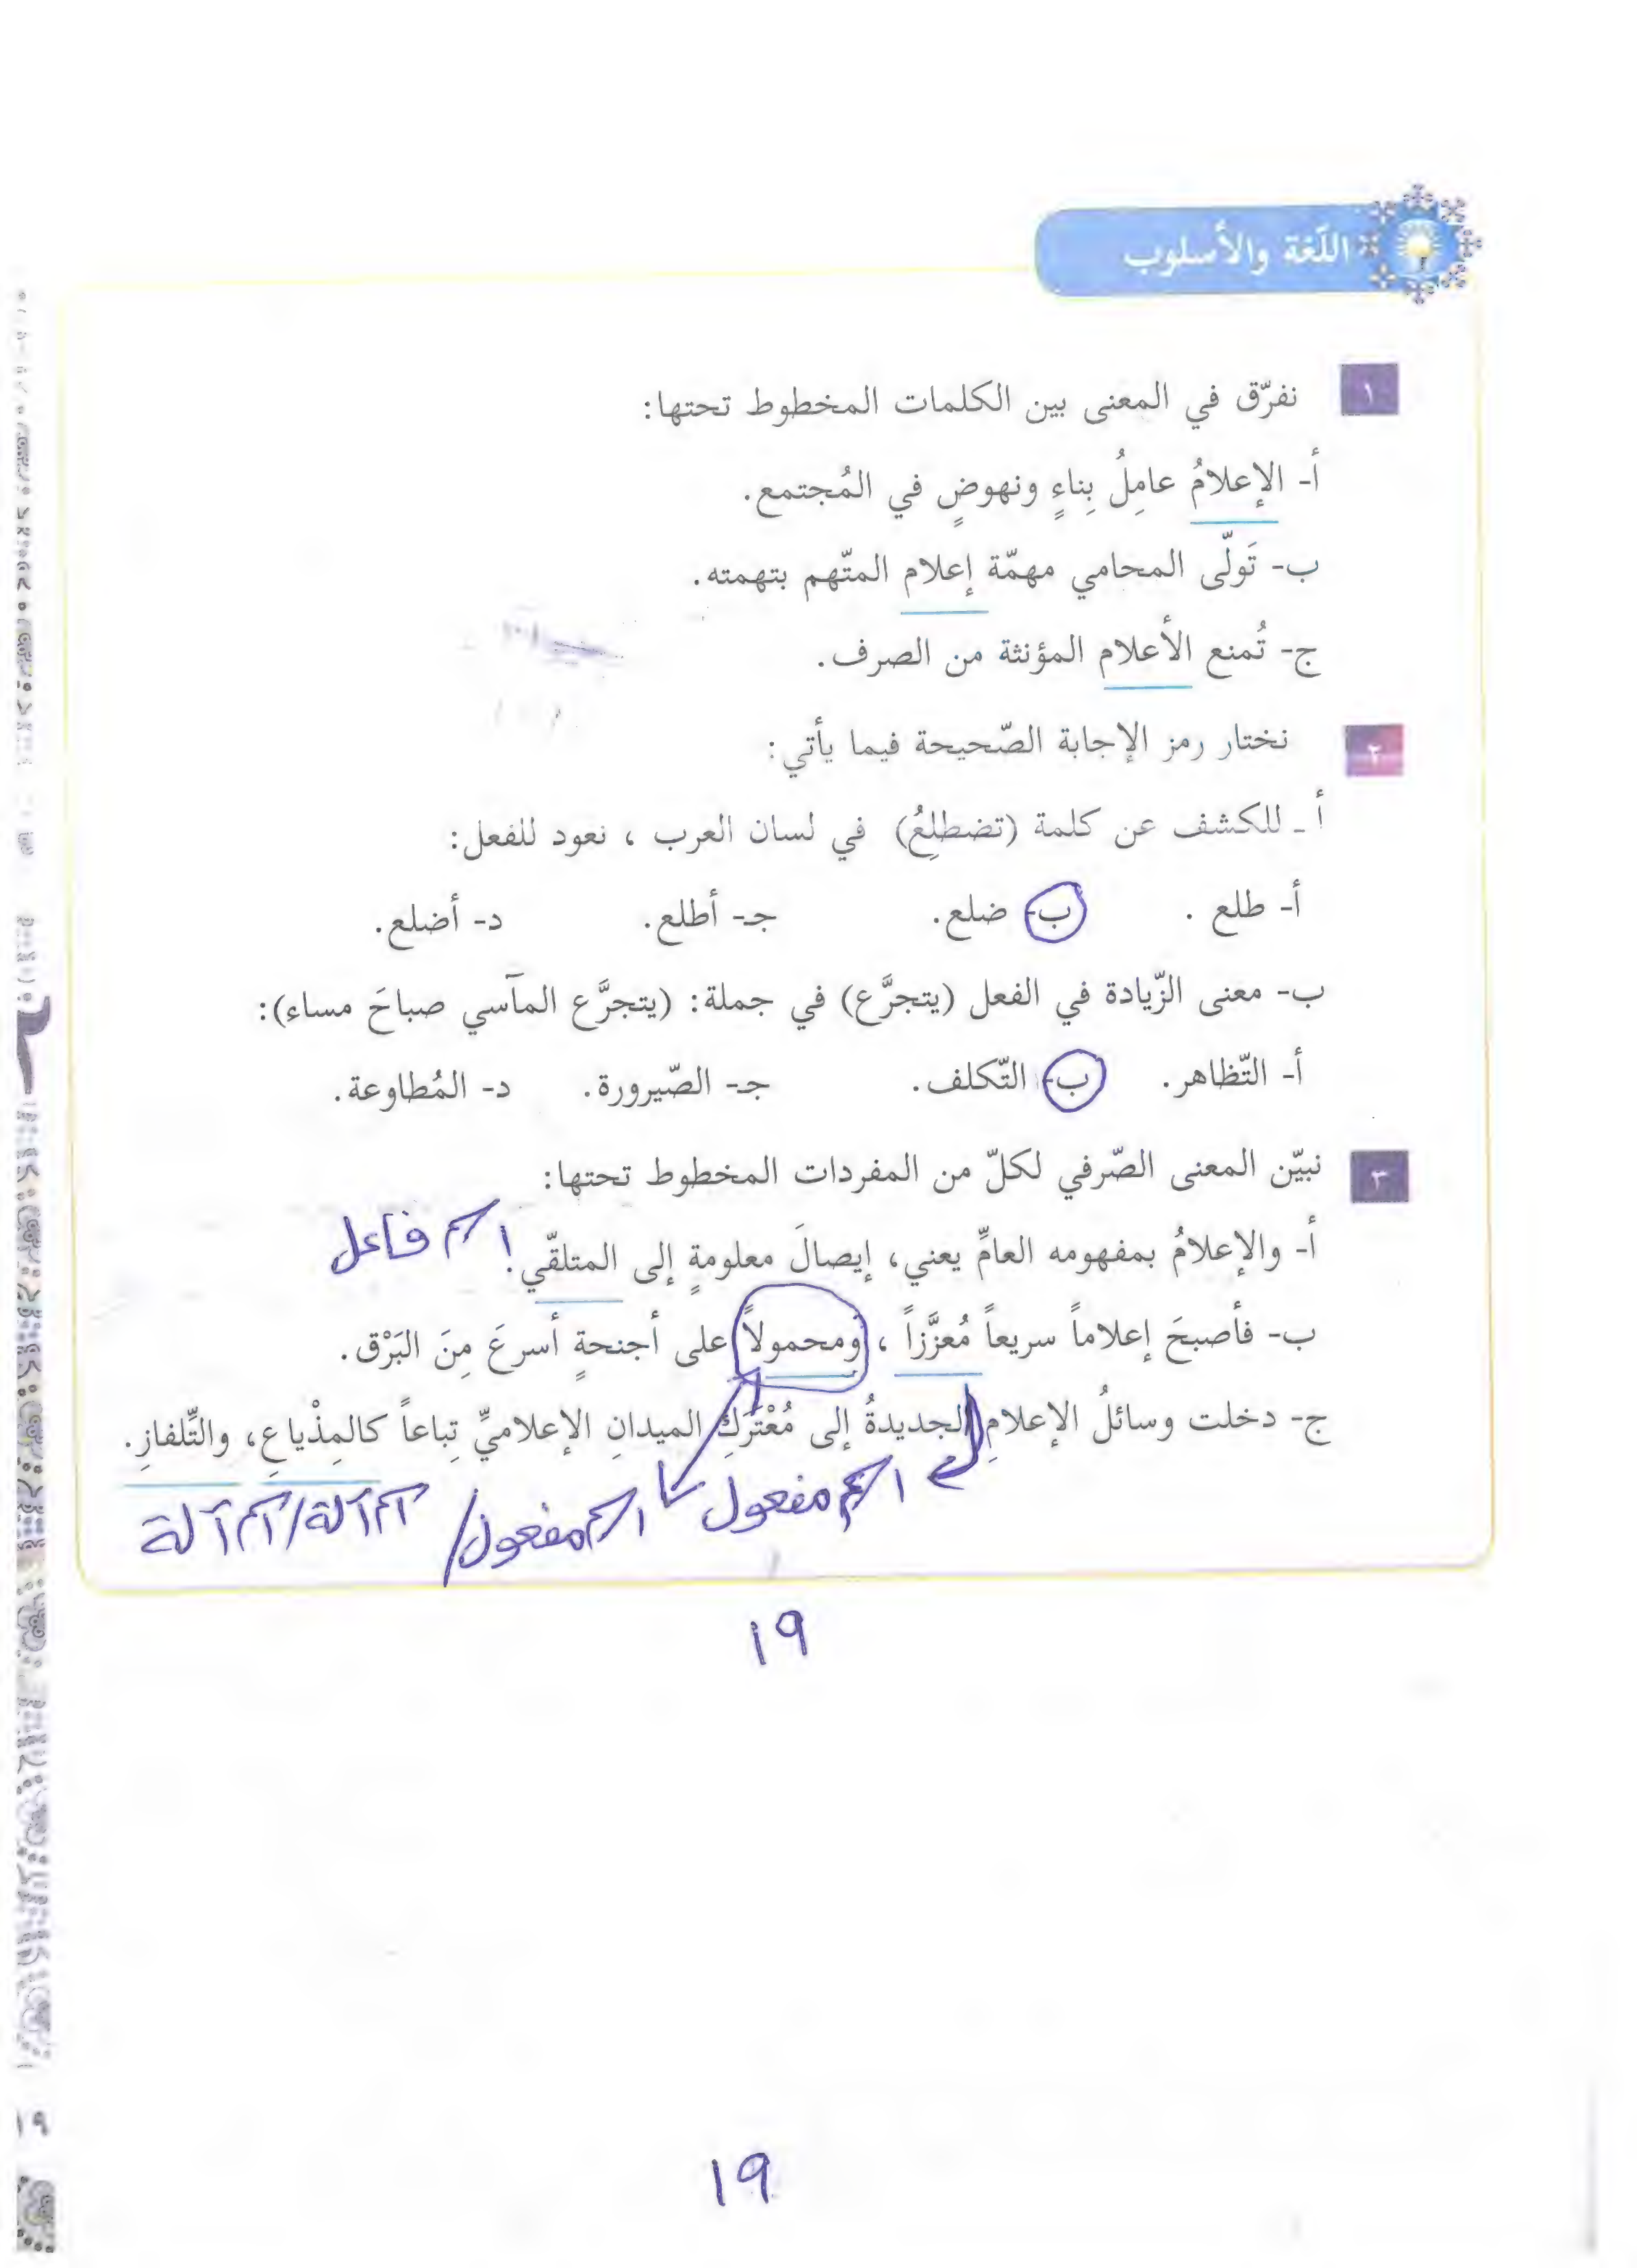 اللّغة والأسلوب
١ نفرّق في المعنى بين الكلمات المخطوط تحتها:
أ- الإعلامُ عامِلُ بِناءٍ ونهوضٍ في المُجتمع.
ب- تَولّى المحامي مهمّة إعلام المتّهم بتهمته.
ج- تُمنع الأعلام المؤنثة من الصرف.
٢ نختار رمز الإجابة الصّحيحة فيما يأتي:
أ ـ للكشف عن كلمة (تضطلِعُ) في لسان العرب ، نعود للفعل:
أ- طلع . ب- ضلع. جـ- أطلع. د- أضلع.
ب- معنى الزّيادة في الفعل (يتجرَّع) في جملة: (يتجرَّع المآسي صباحَ مساء):
أ- التّظاهر. ب- التّكلف. جـ- الصّيرورة. د- المُطاوعة.
٣ نبيّن المعنى الصّرفي لكلّ من المفردات المخطوط تحتها:
أ- والإعلامُ بمفهومه العامِّ يعني، إيصالَ معلومةٍ إلى المتلقّي. اسم فاعل
ب- فأصبحَ إعلاماً سريعاً مُعزَّزاً ، ومحمولاً على أجنحةٍ أسرعَ مِنَ البَرْق.
ج- دخلت وسائلُ الإعلامِ الجديدةُ إلى مُعْتَرَكِ الميدانِ الإعلاميِّ تِباعاً كالمِذْياعِ، والتِّلفازِ.
اسم مفعول اسم مفعول/ اسم آلة/اسم آلة
١٩
١٩
١٩